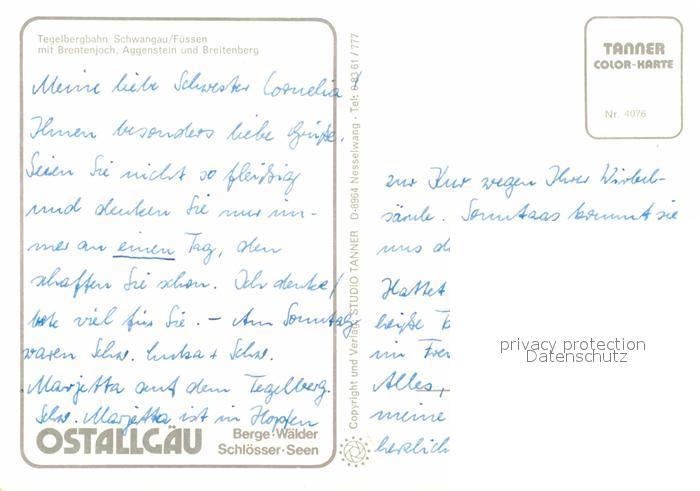 Tegelbergbahn Schwangau/Füssen
mit Brentenjoch, Aggenstein und Breitenberg
Meine liebe Schwester Cornelia!
Ihnen besonders liebe Grüße.
Seien Sie nicht so fleißig
und denken Sie nur im-
mer an einen Tag, den
schaffen Sie schon. Ich denke/
bete viel für Sie. – Am Sonntag
waren Schw. Luka + Schw.
Marjetta auf dem Tegelberg.
Schw. Marjetta ist in Hopfen
OSTALLGÄU
Berge·Wälder
Schlösser·Seen
Copyright und Verlag: STUDIO TANNER D-8964 Nesselwang · Tel: 0 83 61 / 777
TANNER
COLOR-KARTE
Nr. 4076
zur Kur wegen Ihrer Wirbel-
säule. Sonntags kommt sie
uns
Hattet
heiße
im
Alles,
meine
herzlich
privacy protection
Datenschutz